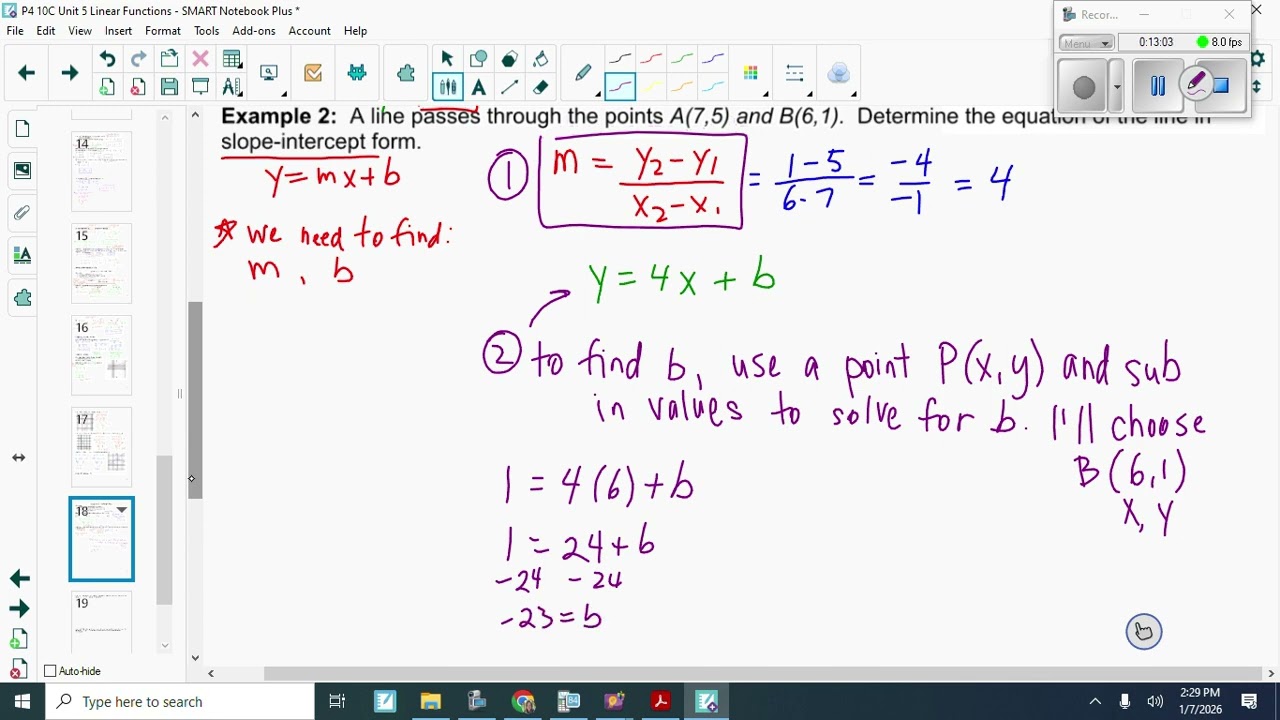 P4 10C Unit 5 Linear Functions - SMART Notebook Plus *
File Edit View Insert Format Tools Add-ons Account Help
Recor...
Menu
0:13:03 8.0 fps
14
15
16
17
18
19
Auto-hide
Example 2: A line passes through the points A(7,5) and B(6,1). Determine the equation of the line in
slope-intercept form.
y=mx+b
* we need to find:
m, b
① m = y₂-y₁/x₂-x₁ = 1-5/6-7 = -4/-1 = 4
y=4x+b
② to find b, use a point P(x,y) and sub
in values to solve for b. I'll choose
B(6,1)
x, y
1=4(6)+b
1=24+b
-24 -24
-23=b
Type here to search
2:29 PM
1/7/2026